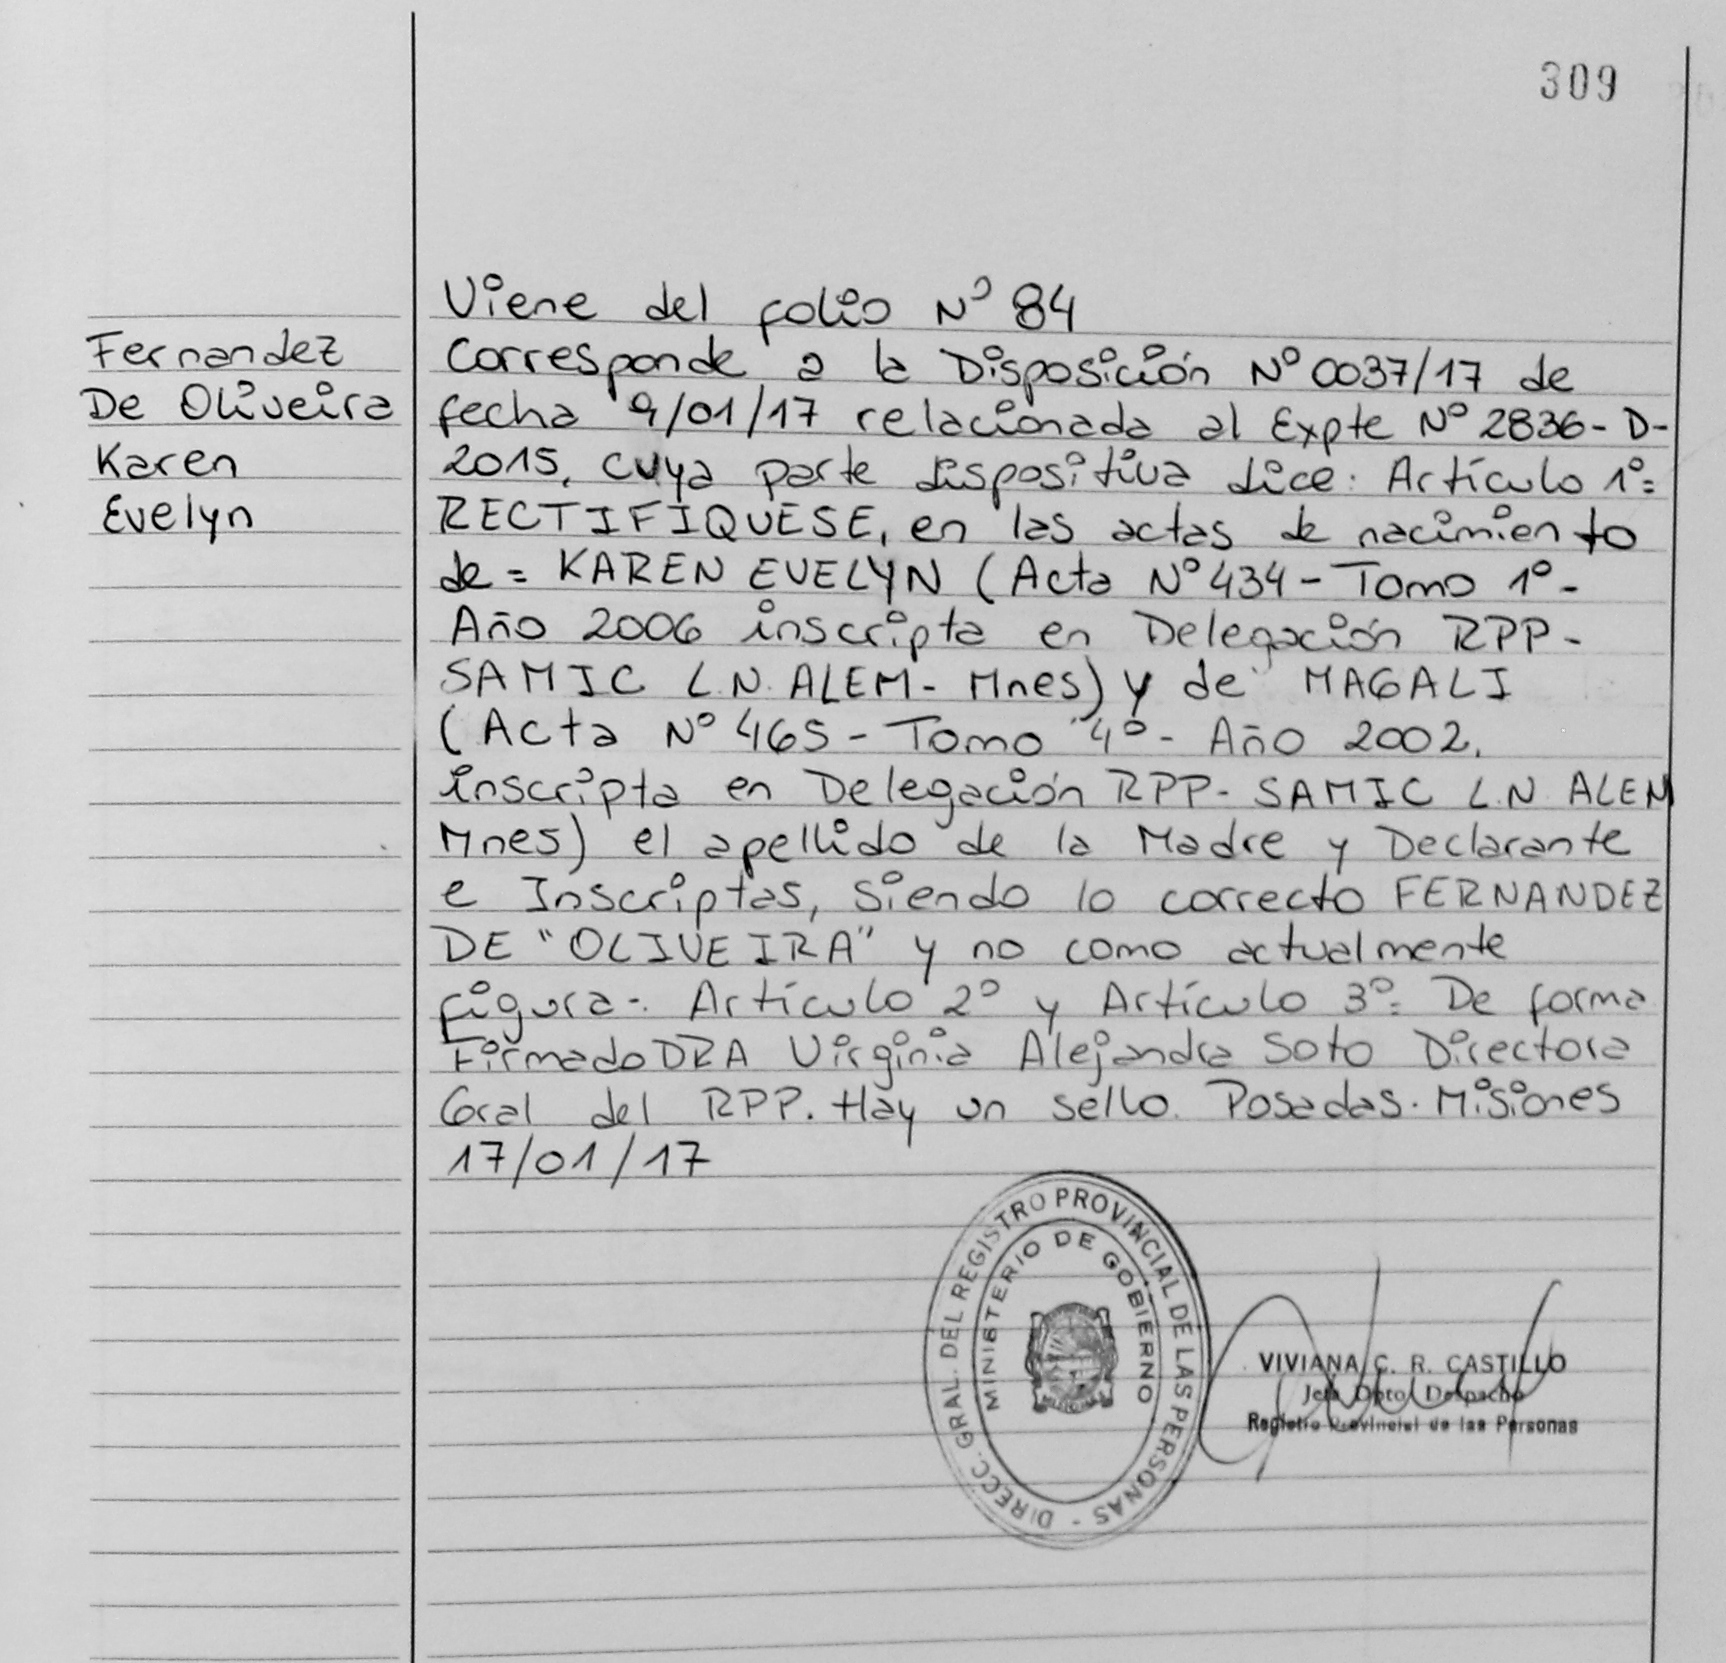 309
Viene del folio Nº 84
Fernandez
De Oliveira
Karen
Evelyn
Corresponde a la Disposición Nº 0037/17 de
fecha 9/01/17 relacionada al Expte Nº 2836-D-
2015, cuya parte dispositiva dice: Artículo 1º=
RECTIFIQUESE, en las actas de nacimiento
de= KAREN EVELYN (Acta Nº 434- Tomo 1º-
Año 2006 inscripta en Delegación RPP-
SAMIC L.N. ALEM- Mnes) y de MAGALI
(Acta Nº 465- Tomo 4º- Año 2002,
inscripta en Delegación RPP- SAMIC L.N ALEM
Mnes) el apellido de la Madre y Declarante
e Inscriptas, siendo lo correcto FERNANDEZ
DE "OLIVEIRA" y no como actualmente
figura-. Artículo 2º y Artículo 3º= De forma
Firmado DRA Virginia Alejandra Soto Directora
Gral del RPP. Hay un sello. Posadas. Misiones
17/01/17
DIRECC. GRAL. DEL REGISTRO PROVINCIAL DE LAS PERSONAS -
MINISTERIO DE GOBIERNO
VIVIANA C. R. CASTILLO
Jefa Dpto Despacho
Registro Provincial de las Personas